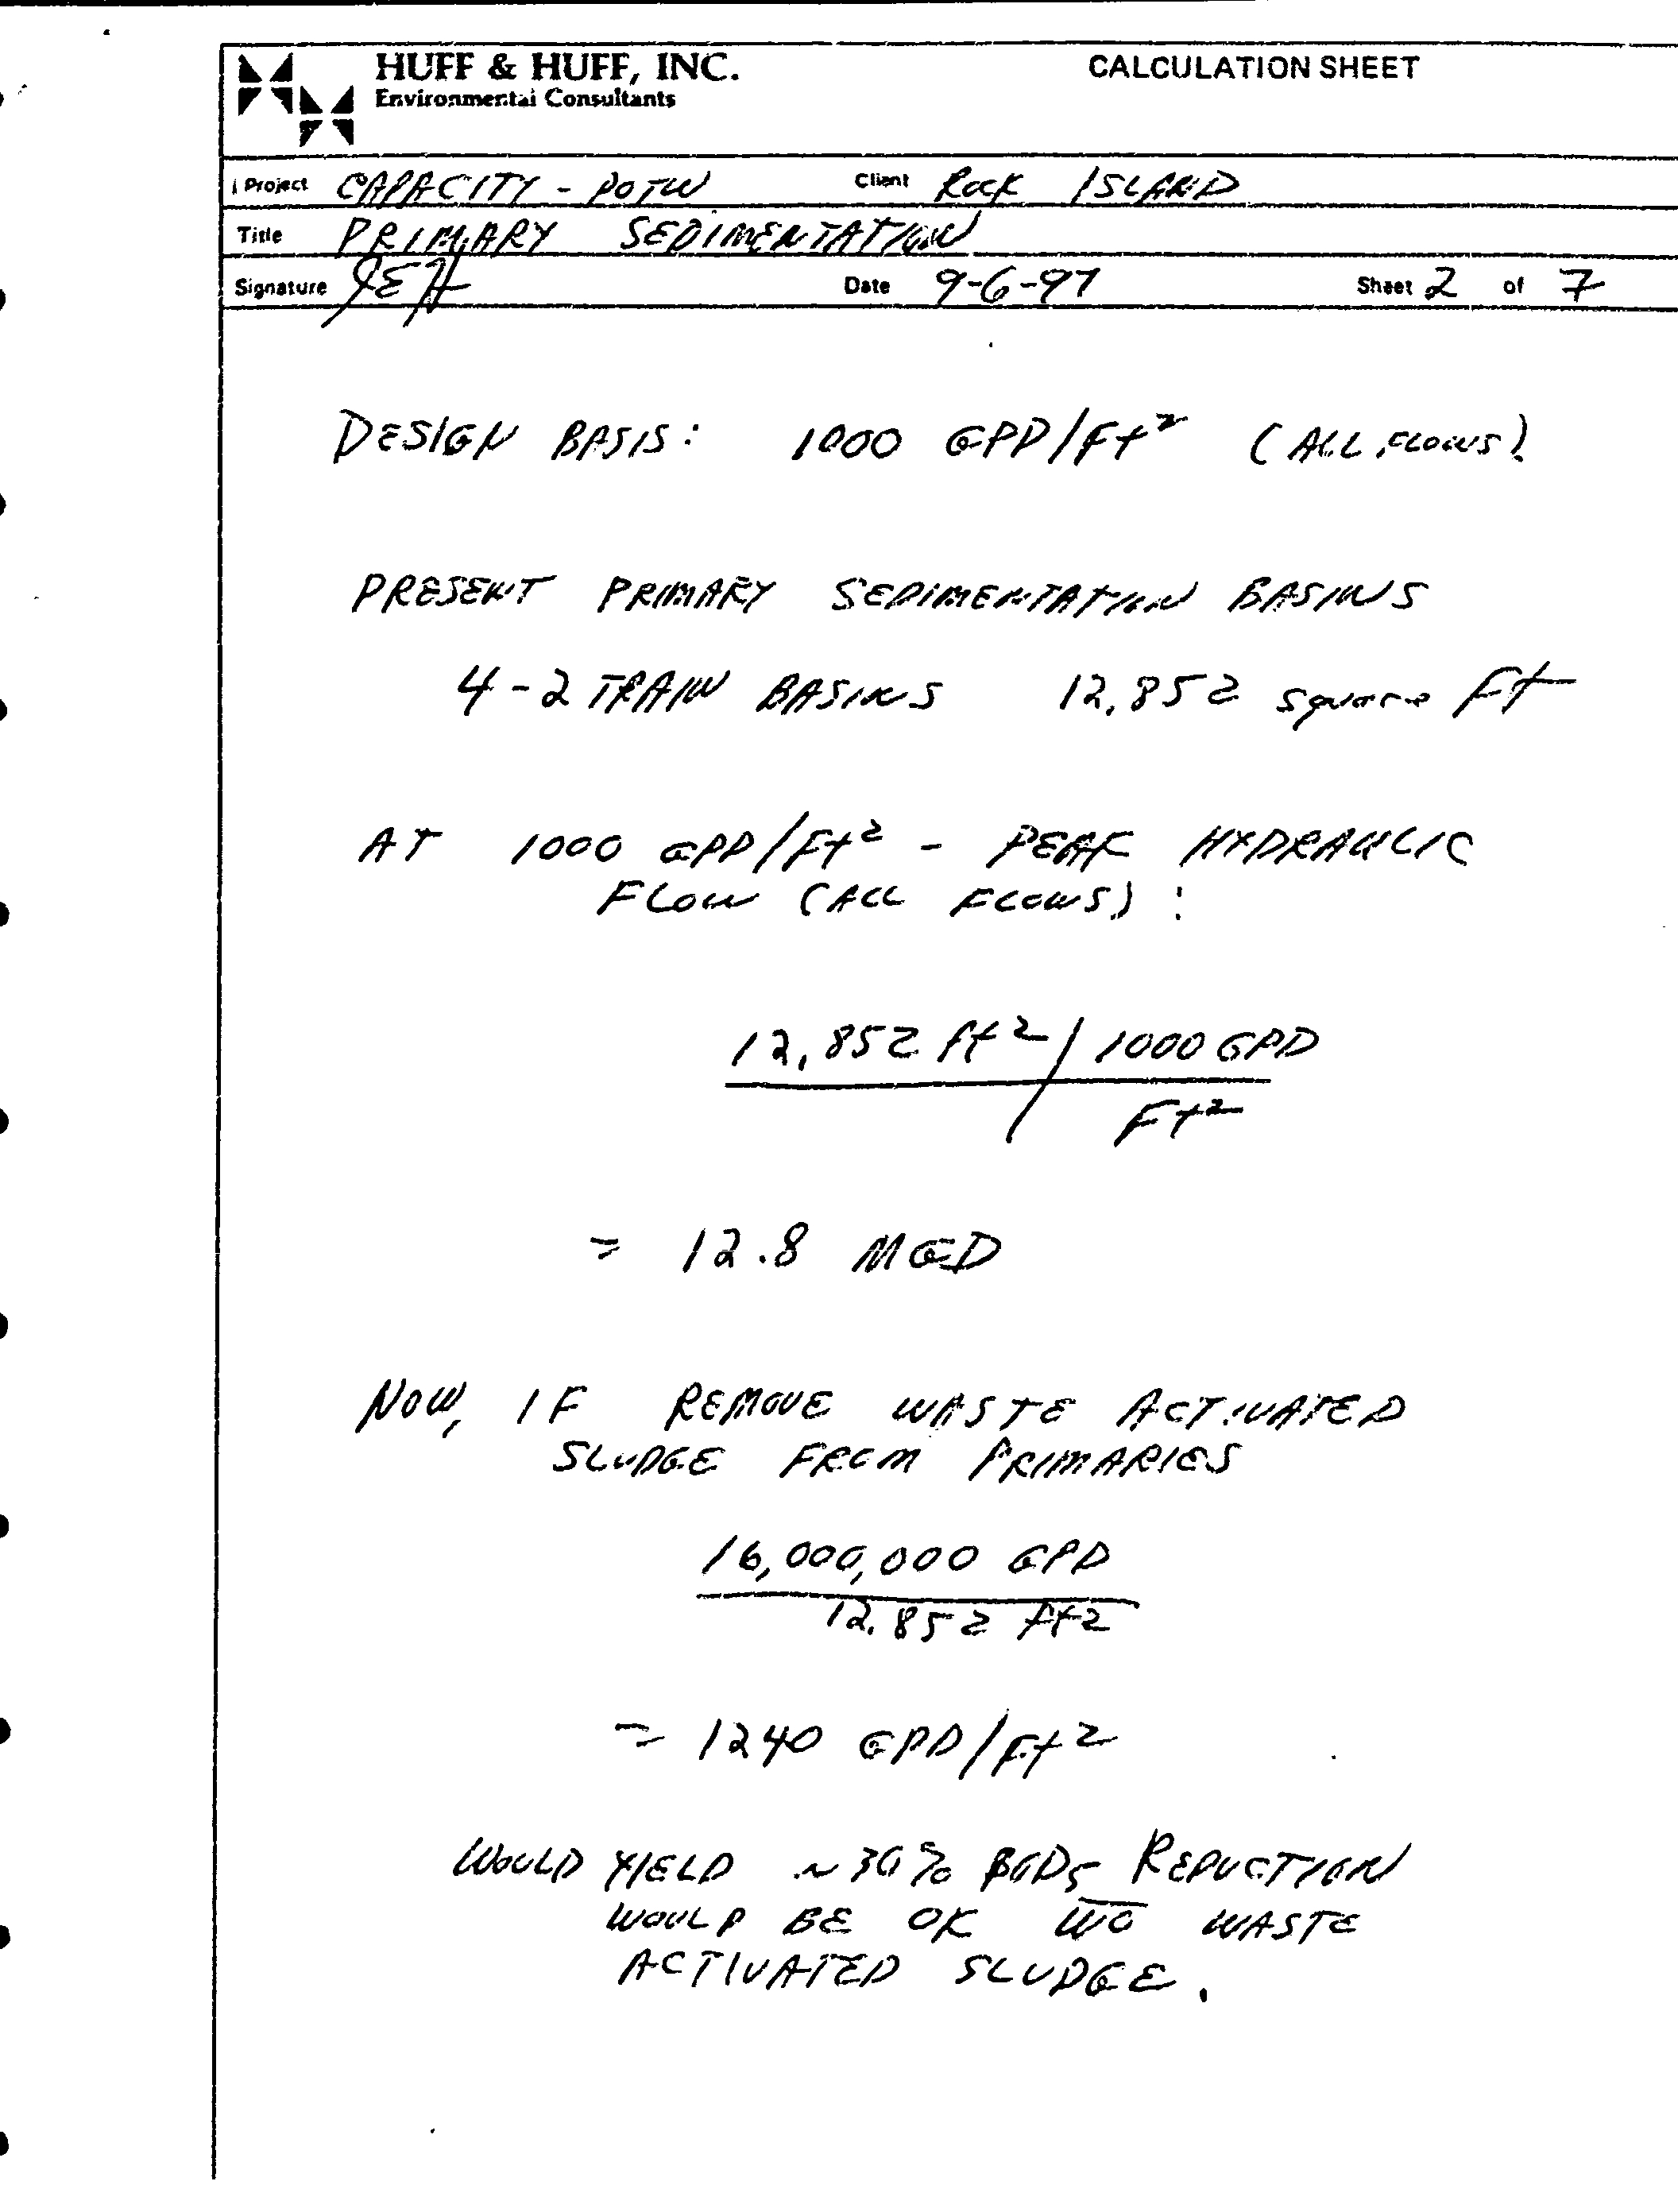 HUFF & HUFF, INC.
Environmental Consultants
CALCULATION SHEET
Project CAPACITY - POTW Client ROCK ISLAND
Title PRIMARY SEDIMENTATION
Signature JEH Date 9-6-97 Sheet 2 of 7
DESIGN BASIS: 1000 GPD/Ft² (ALL FLOWS)
PRESENT PRIMARY SEDIMENTATION BASINS
4-2 TRAIN BASINS 12,852 square Ft
AT 1000 GPD/Ft² - PEAK HYDRAULIC
FLOW (ALL FLOWS):
12,852 ft² / 1000 GPD
Ft²
= 12.8 MGD
NOW, IF REMOVE WASTE ACTIVATED
SLUDGE FROM PRIMARIES
16,000,000 GPD
12,852 ft2
= 1240 GPD/Ft²
WOULD YIELD ~ 30% BOD5 REDUCTION
WOULD BE OK WO WASTE
ACTIVATED SLUDGE.